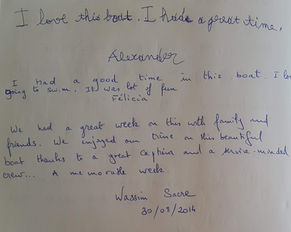 I love this boat. I had a great time.
Alexander
I had a good time in this boat. I lo
going to swim. It was lot of fun
Félicia
We had a great week on this with family and
friends. We enjoyed our time on this beautiful
boat thanks to a great captain and a service-minded
crew... A memorable week
Wassim Sacre
30/08/2014